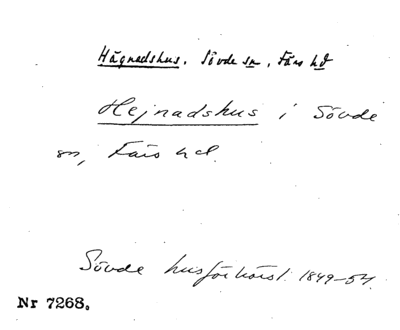 Hägnadshus. Sövde sn, Färs hd
Hejnadshus i Sövde
sn, Färs hd.
Sövde husförhörsl. 1849-54.
Nr 7268.